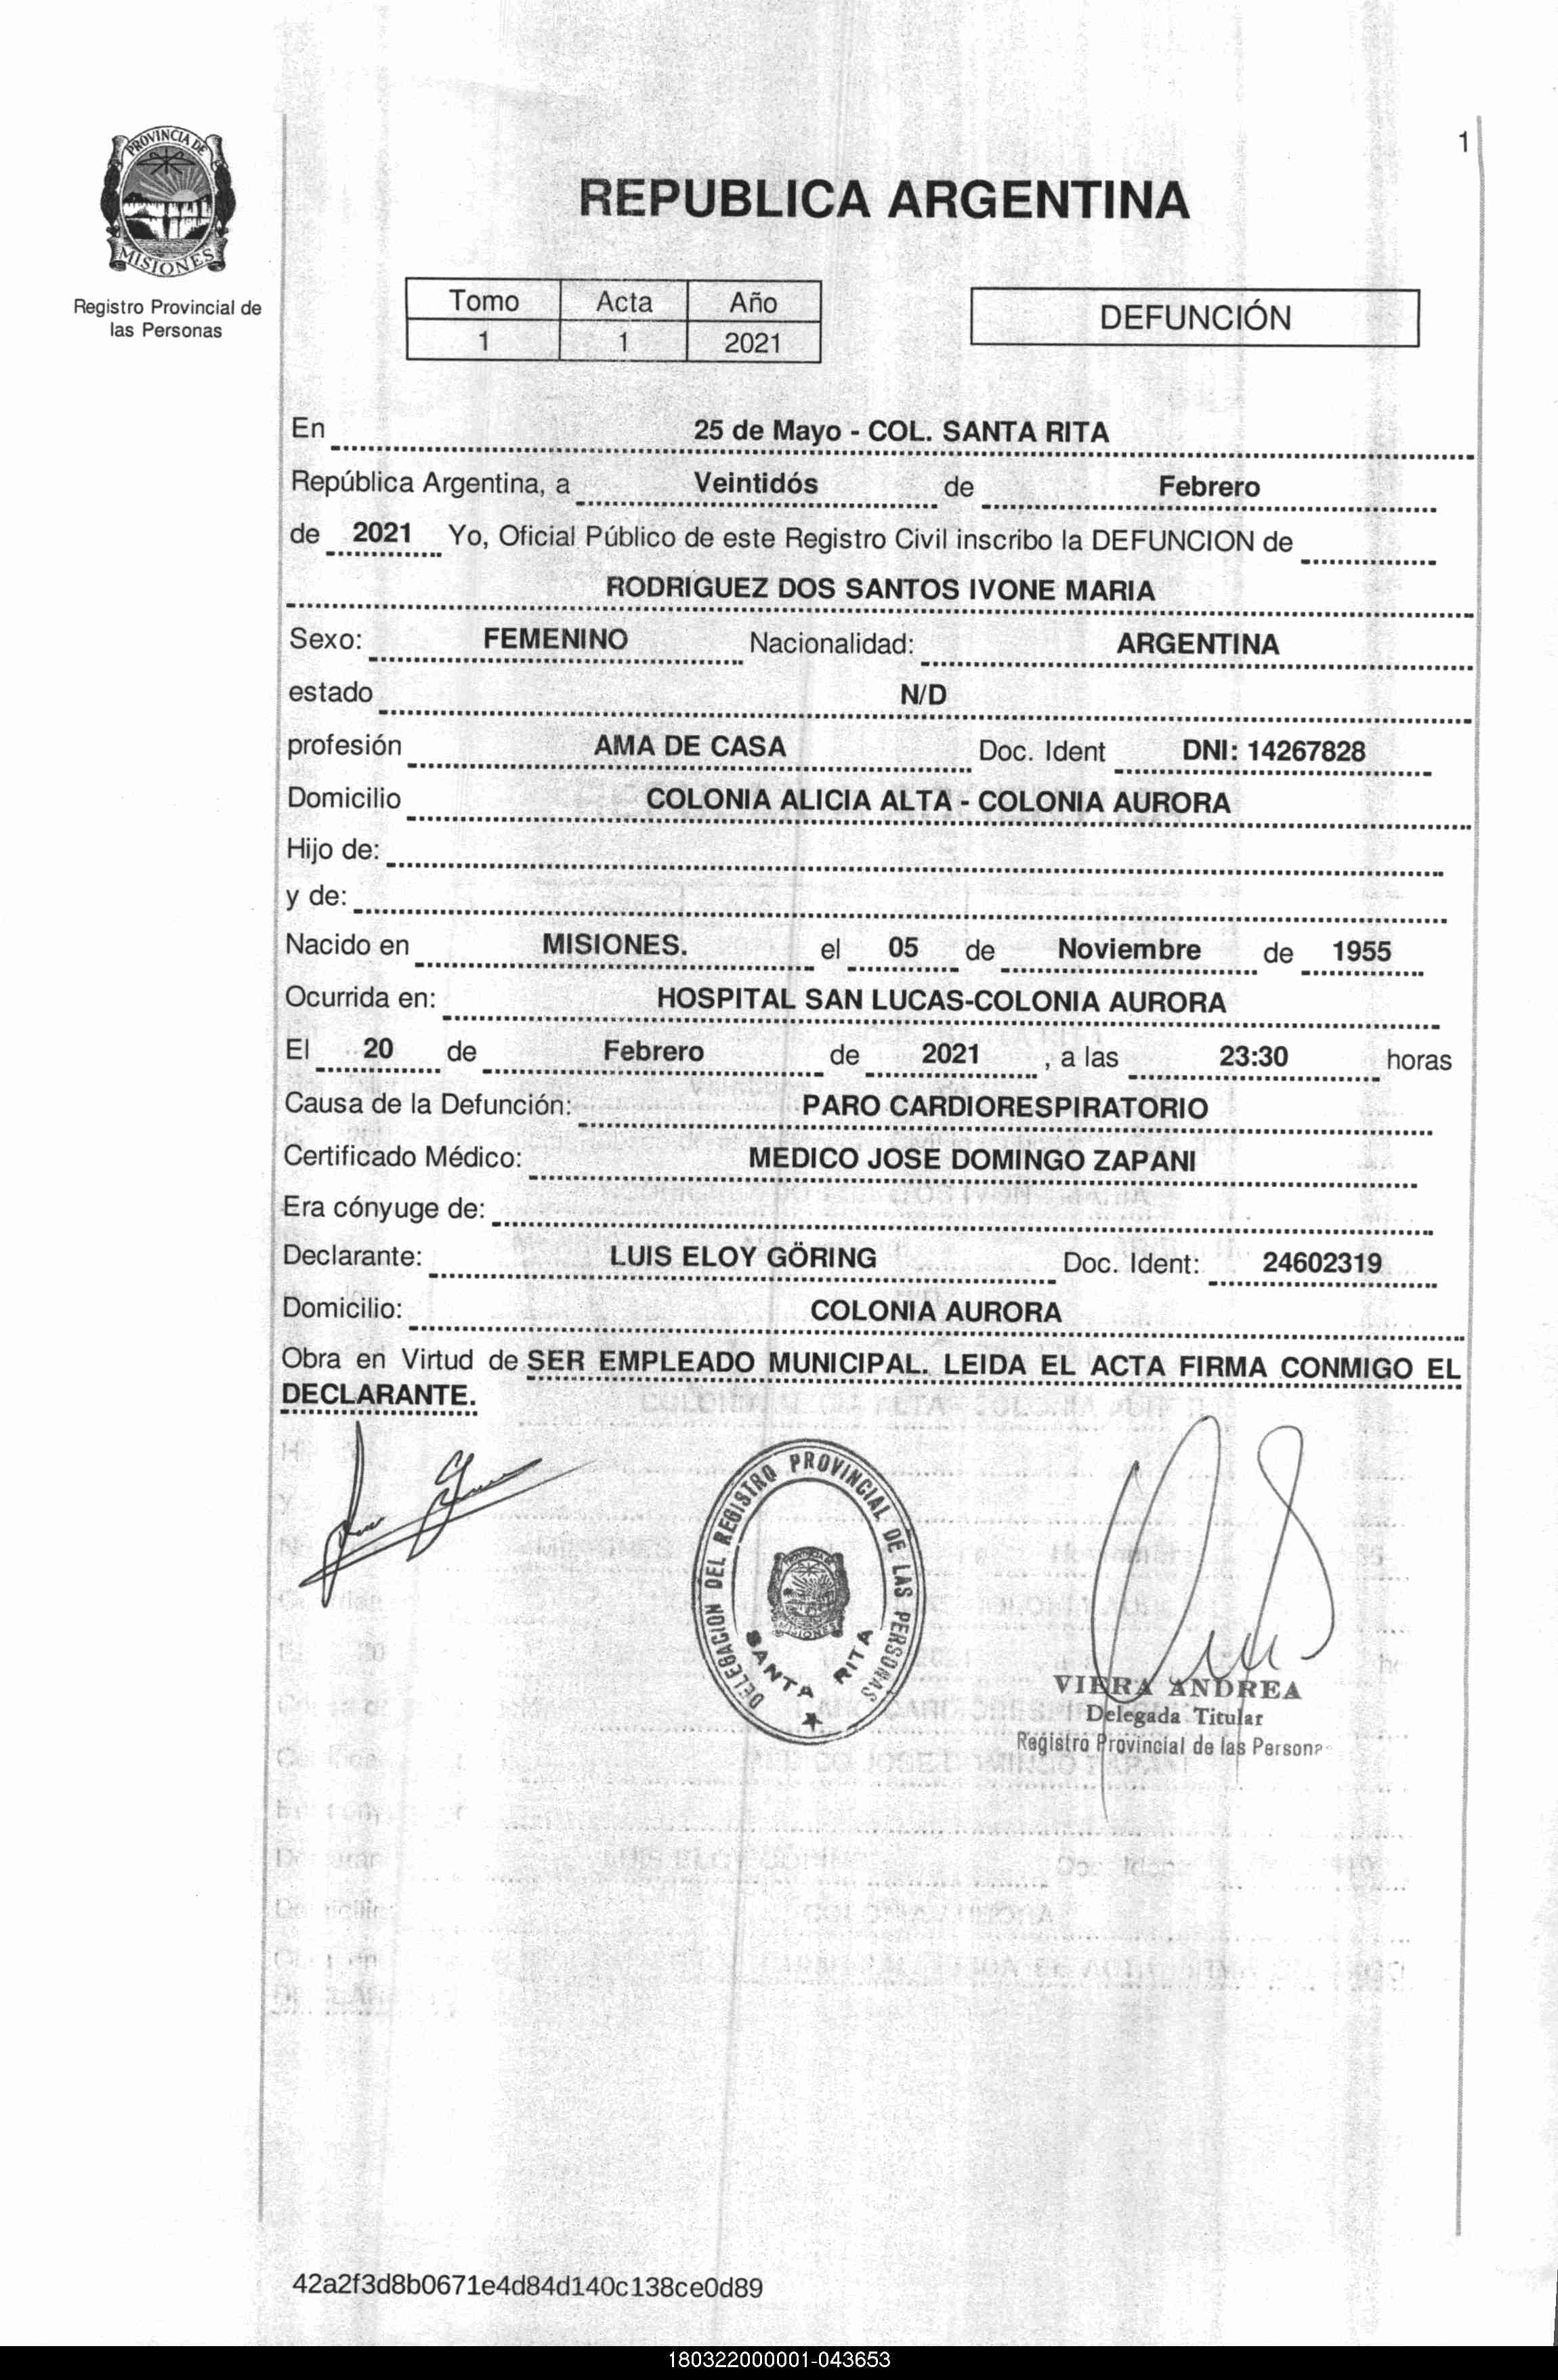 1
PROVINCIA DE
MISIONES
REPUBLICA ARGENTINA
Registro Provincial de
las Personas
Tomo Acta Año
1 1 2021
DEFUNCIÓN
En 25 de Mayo - COL. SANTA RITA
República Argentina, a Veintidós de Febrero
de 2021 Yo, Oficial Público de este Registro Civil inscribo la DEFUNCION de
RODRIGUEZ DOS SANTOS IVONE MARIA
Sexo: FEMENINO Nacionalidad: ARGENTINA
estado N/D
profesión AMA DE CASA Doc. Ident DNI: 14267828
Domicilio COLONIA ALICIA ALTA - COLONIA AURORA
Hijo de:
y de:
Nacido en MISIONES. el 05 de Noviembre de 1955
Ocurrida en: HOSPITAL SAN LUCAS-COLONIA AURORA
El 20 de Febrero de 2021 , a las 23:30 horas
Causa de la Defunción: PARO CARDIORESPIRATORIO
Certificado Médico: MEDICO JOSE DOMINGO ZAPANI
Era cónyuge de:
Declarante: LUIS ELOY GÖRING Doc. Ident: 24602319
Domicilio: COLONIA AURORA
Obra en Virtud de SER EMPLEADO MUNICIPAL. LEIDA EL ACTA FIRMA CONMIGO EL
DECLARANTE.
DELEGACION DEL REGISTRO PROVINCIAL DE LAS PERSONAS
SANTA RITA
VIERA ANDREA
Delegada Titular
Registro Provincial de las Persona
42a2f3d8b0671e4d84d140c138ce0d89
180322000001-043653